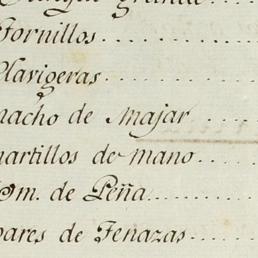 grande
Tornillos
Clavigeras
macho de Majar
martillos de mano
Ydm. de Peña
pares de Tenazas